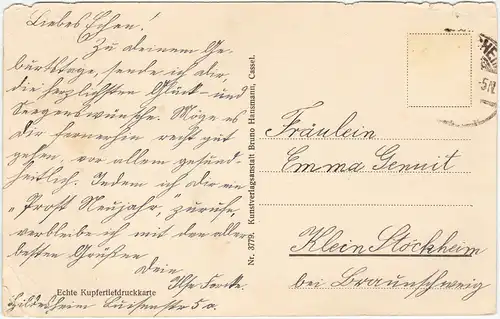 Liebes Echen!
Zu deinem Ge-
burtstage, sende ich dir,
die herzlichsten Glück- und
Segenswünsche. Möge es
Dir fernerhin recht gut
gehen, vor allem gesund-
heitlich. Indem ich dir ein
"Prost Neujahr", zurufe,
verbleibe ich mit den aller-
besten Grüßen
Dein
Ilse
Hildesheim Luisenstr 5a.
Echte Kupfertiefdruckkarte
Nr. 3779. Kunstverlagsanstalt Bruno Hansmann, Cassel.
Fräulein
Emma Gennit
Klein Stöckheim
bei Braunschweig